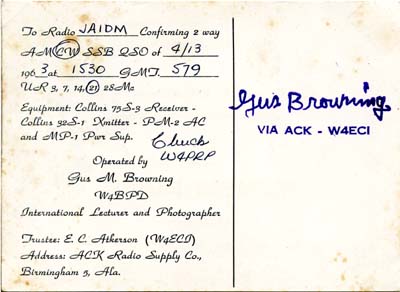 To Radio JA1DM Confirming 2 way
AM CW SSB QSO of 4/13
1963 at 1530 GMT. 579
UR 3, 7, 14, 21 28Mc
Equipment: Collins 75S-3 Receiver -
Collins 32S-1 Xmitter - PM-2 AC
and MP-1 Pwr Sup.
Chuck
W4PRP
Operated by
Gus M. Browning
W4BPD
International Lecturer and Photographer
Trustee: E. C. Atkerson (W4ECI)
Address: ACK Radio Supply Co.,
Birmingham 5, Ala.
Gus Browning
VIA ACK - W4ECI